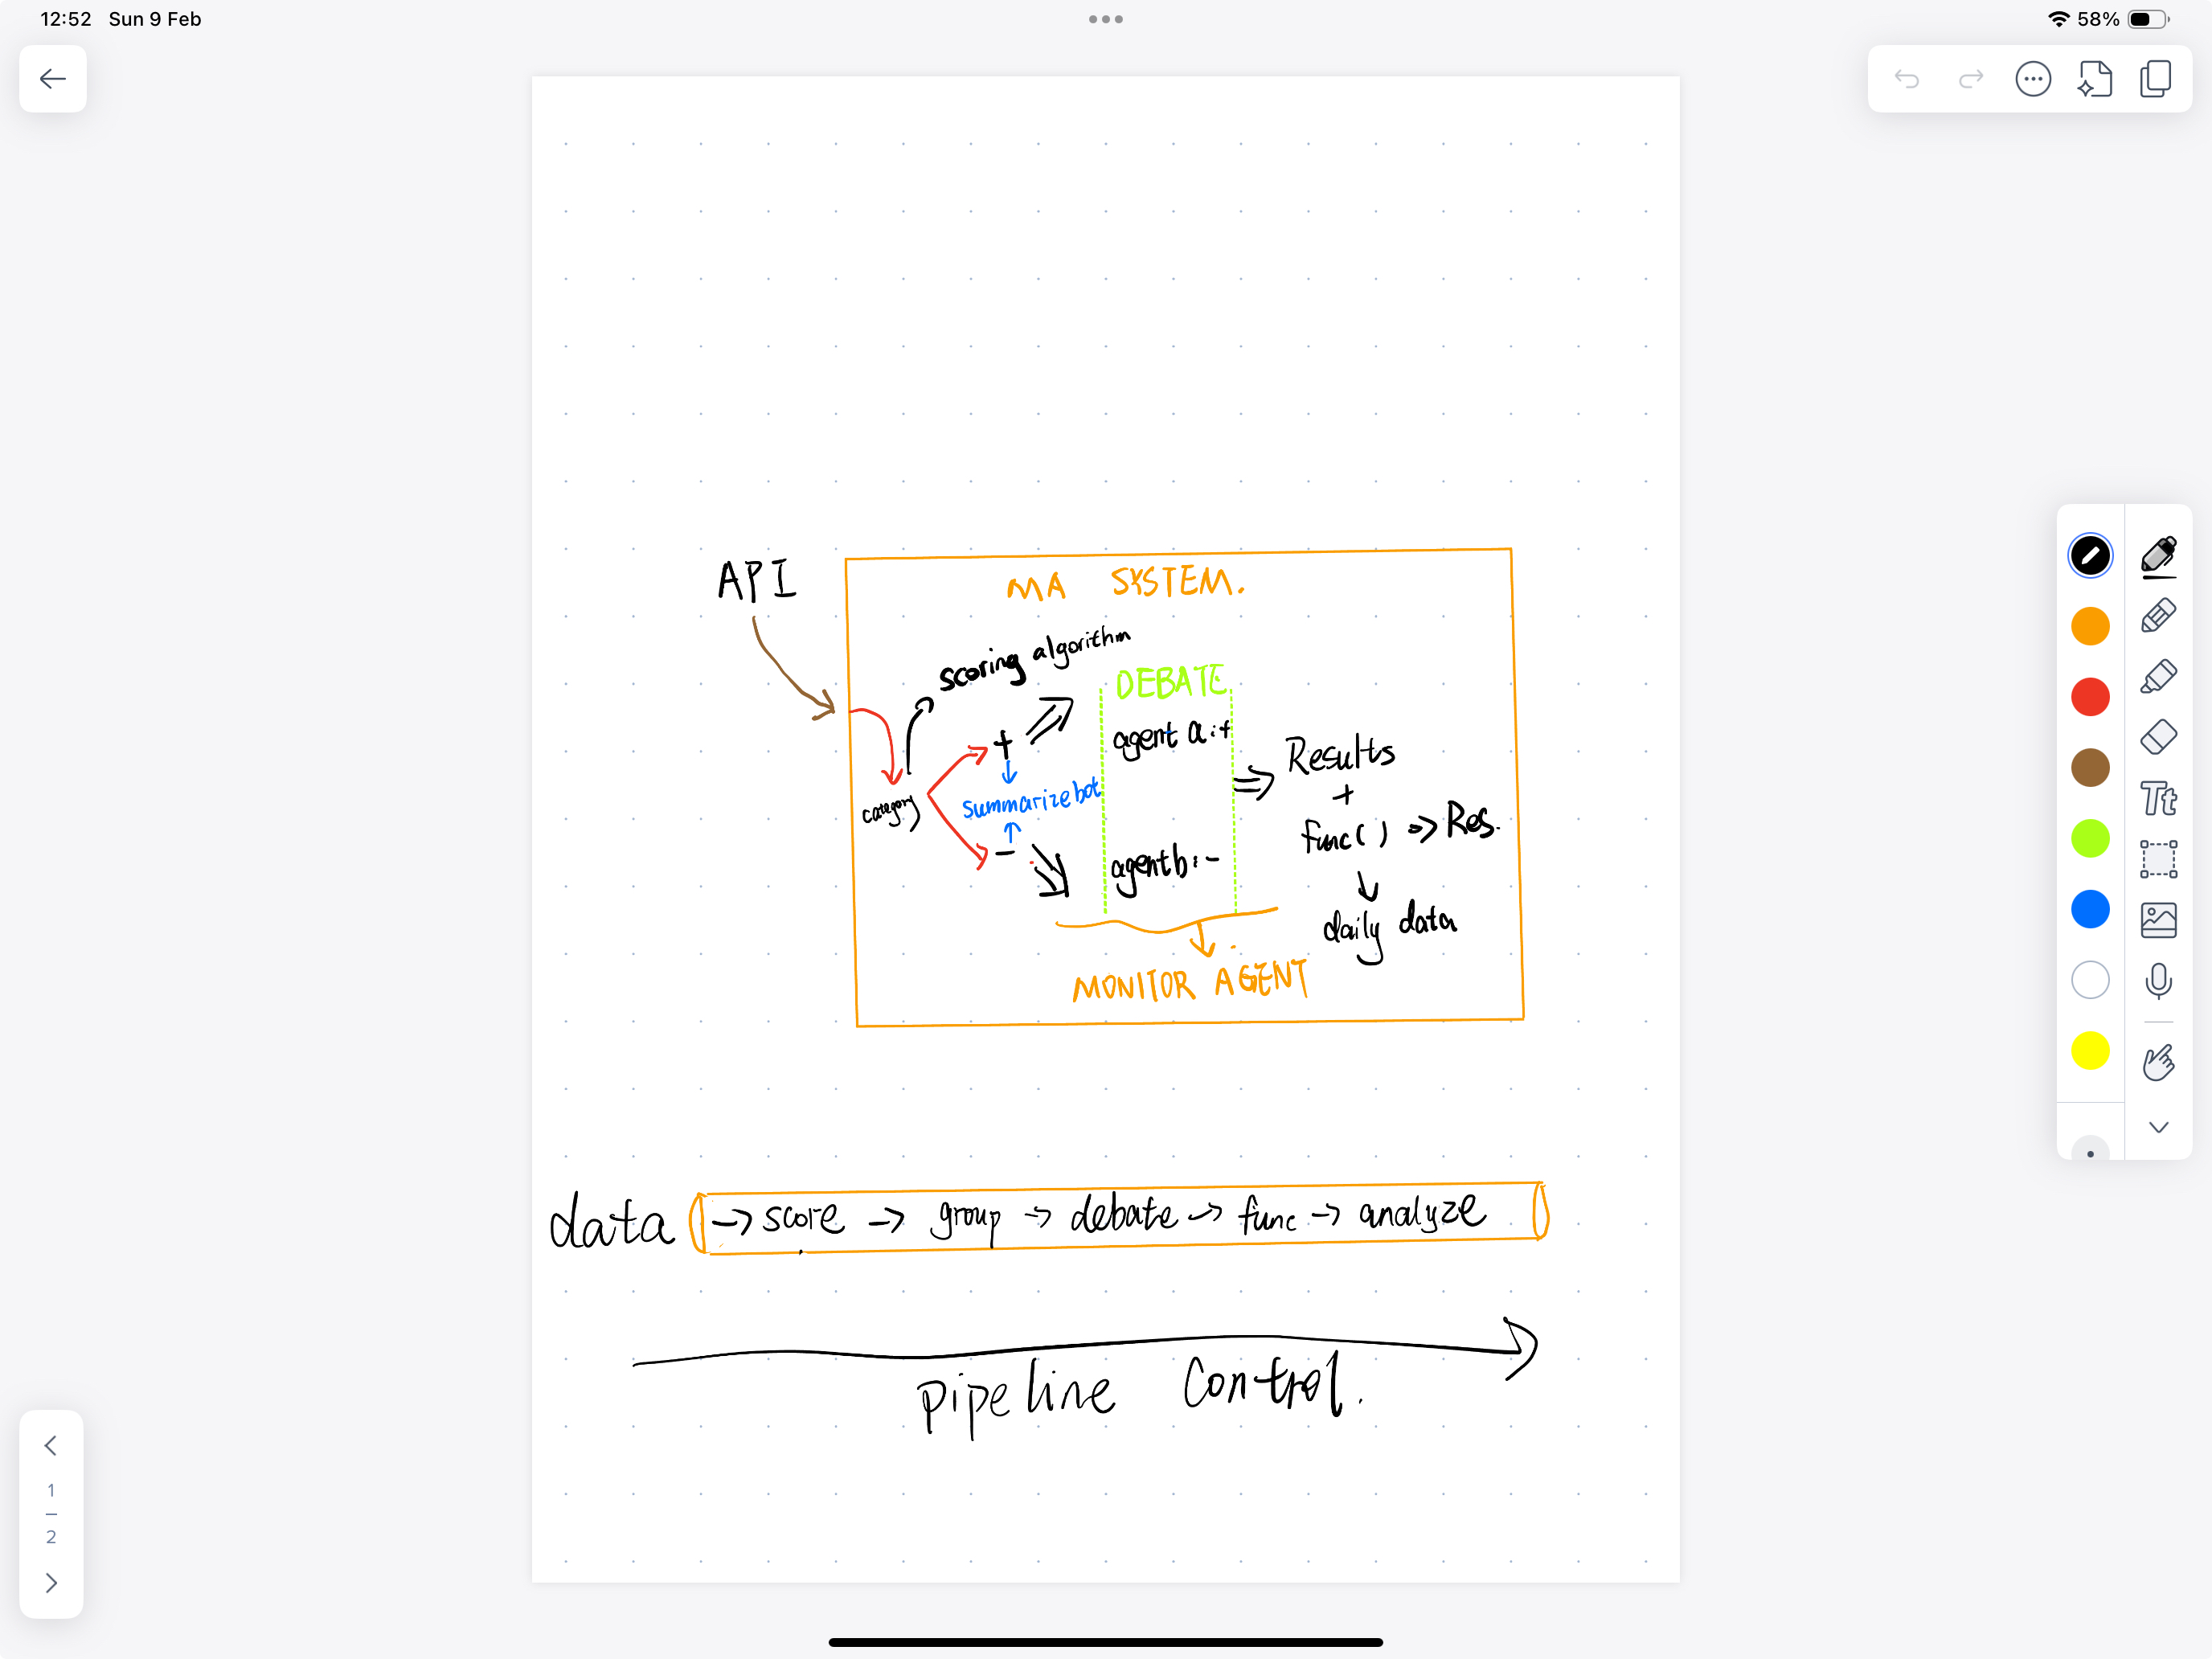 12:52 Sun 9 Feb
58%
API
MA SYSTEM.
scoring algorithm
DEBATE
+
agent a:+
category
summarizebot
-
agent b:-
Results
+
func() => Res.
daily data
MONITOR AGENT
data -> score -> group -> debate -> func -> analyze
pipeline Control.
Tt
1
2